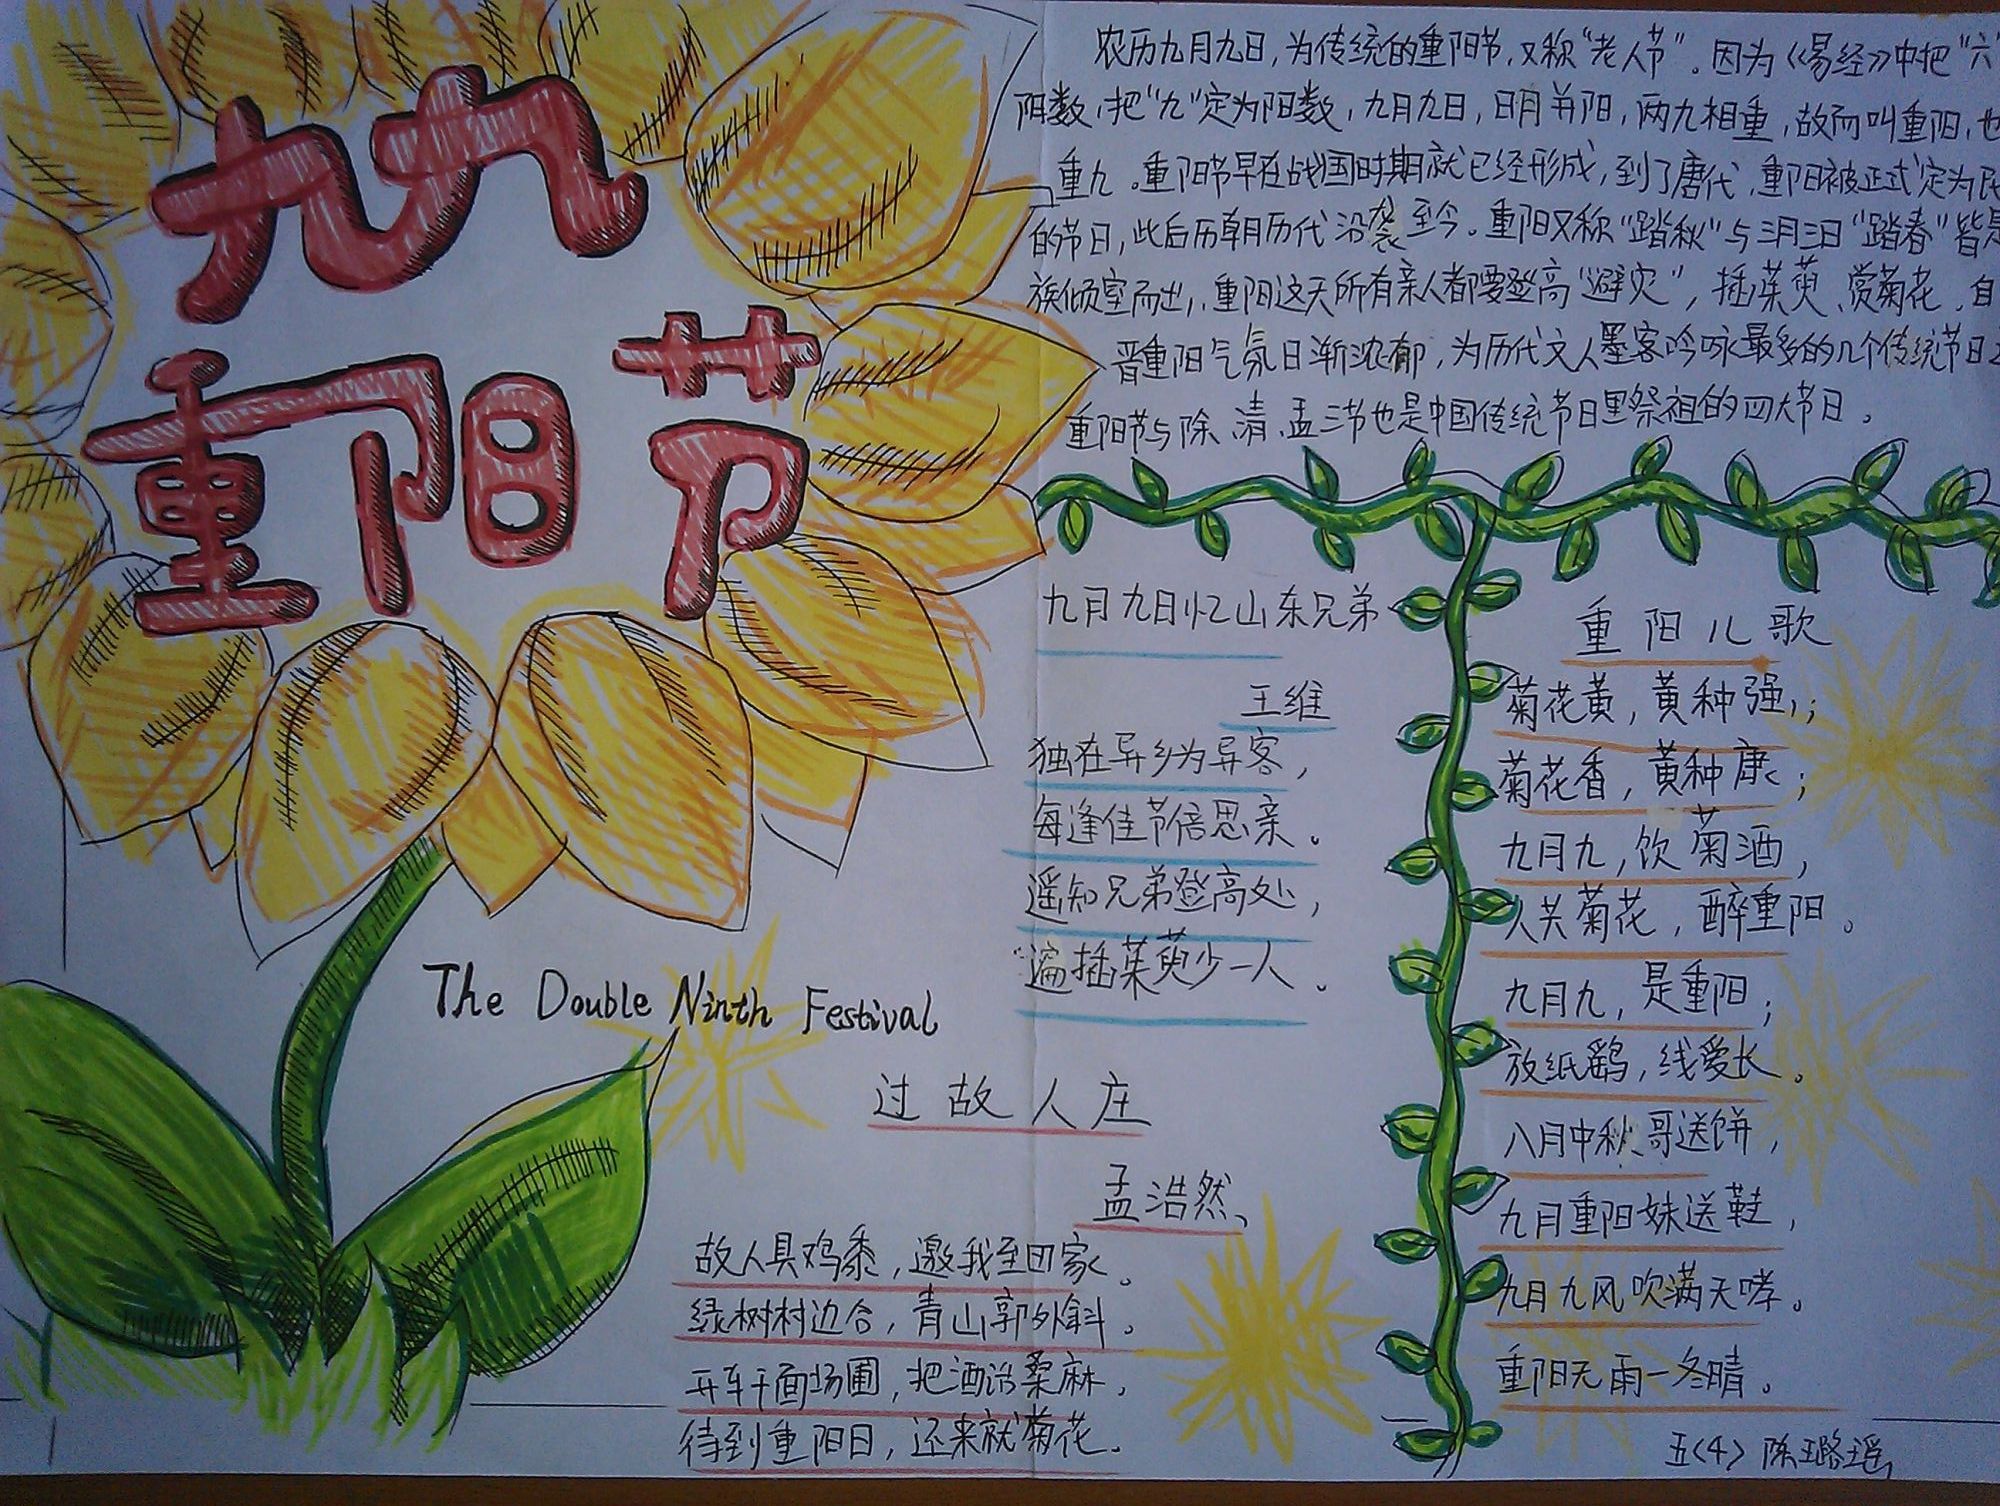 九九
重阳节
农历九月九日，为传统的重阳节，又称“老人节”。因为《易经》中把“六”
阴数，把“九”定为阳数，九月九日，日月并阳，两九相重，故而叫重阳，也
重九。重阳节早在战国时期就已经形成，到了唐代，重阳被正式定为民
的节日，此后历朝历代沿袭至今。重阳又称“踏秋”与三月三日“踏春”皆是
族倾室而出，重阳这天所有亲人都要登高“避灾”，插茱萸、赏菊花。自
晋重阳气氛日渐浓郁，为历代文人墨客吟咏最多的几个传统节日之
重阳节与除、清、盂三节也是中国传统节日里祭祖的四大节日。
九月九日忆山东兄弟
王维
独在异乡为异客，
每逢佳节倍思亲。
遥知兄弟登高处，
遍插茱萸少一人。
The Double Ninth Festival
过故人庄
孟浩然
故人具鸡黍，邀我至田家。
绿树村边合，青山郭外斜。
开车干面场圃，把酒话桑麻。
待到重阳日，还来就菊花。
重阳儿歌
菊花黄，黄种强；
菊花香，黄种康；
九月九，饮菊酒，
人共菊花，醉重阳。
九月九，是重阳；
放纸鹞，线爱长。
八月中秋哥送饼，
九月重阳妹送鞋，
九月九风吹满天哮。
重阳无雨一冬晴。
五(4) 陈璐瑶